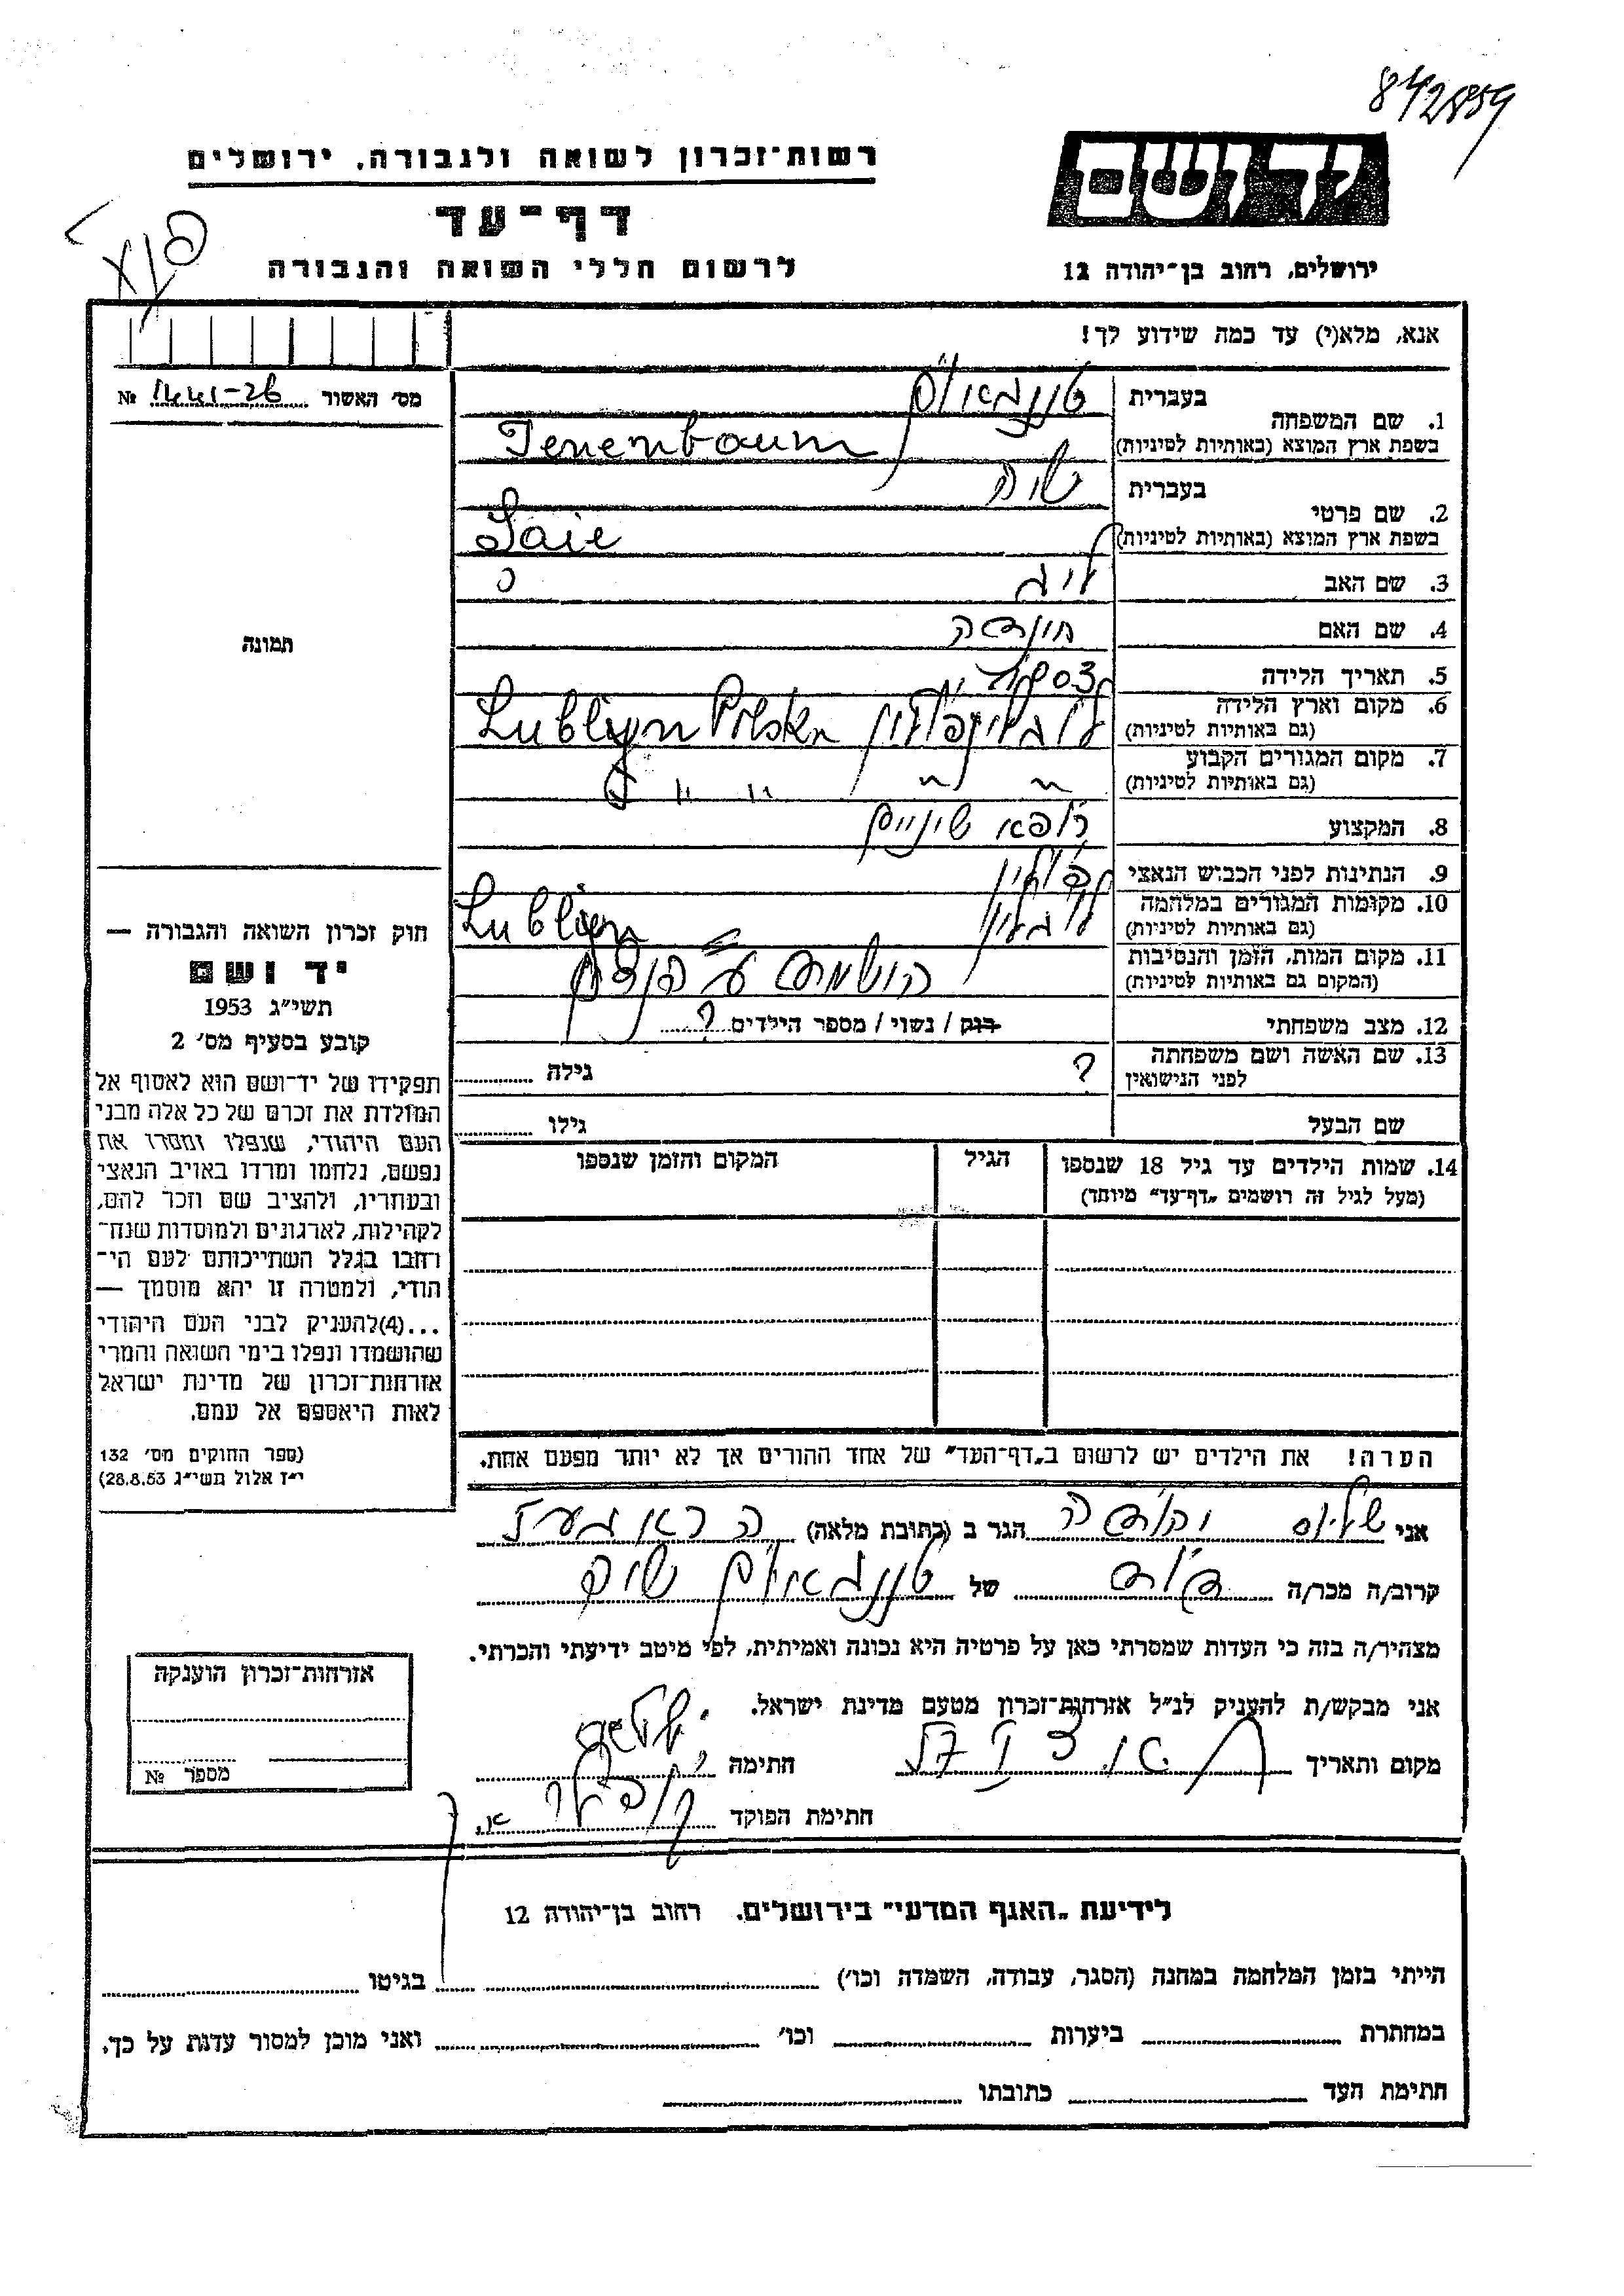 842859
יד ושם
רשות־זכרון לשואה ולגבורה, ירושלים
דף־עד
ירושלים, רחוב בן־יהודה 12
לרשום חללי השואה והגבורה
אנא, מלא(י) עד כמה שידוע לך!
מס׳ האשור №
1. שם המשפחה
בעברית טננבאום
בשפת ארץ המוצא (באותיות לטיניות) Tenenboum
2. שם פרטי
בעברית
בשפת ארץ המוצא (באותיות לטיניות) Saie
3. שם האב
4. שם האם
5. תאריך הלידה
6. מקום וארץ הלידה לובלין פולין Lublijn Polska
(גם באותיות לטיניות)
7. מקום המגורים הקבוע " " " "
(גם באותיות לטיניות)
8. המקצוע רופא שיניים
9. הנתינות לפני הכבוש הנאצי פולין
10. מקומות המגורים במלחמה לובלין Lublijn
(גם באותיות לטיניות)
11. מקום המות, הזמן והנסיבות
(המקום גם באותיות לטיניות)
12. מצב משפחתי רוק / נשוי / מספר הילדים ?
13. שם האשה ושם משפחתה ? גילה
לפני הנישואין
שם הבעל גילו
14. שמות הילדים עד גיל 18 שנספו הגיל המקום והזמן שנספו
(מעל לגיל זה רושמים „דף־עד” מיוחד)
הערה! את הילדים יש לרשום ב„דף־העד” של אחד ההורים אך לא יותר מפעם אחת.
תמונה
חוק זכרון השואה והגבורה —
יד ושם
תשי״ג 1953
קובע בסעיף מס׳ 2
תפקידו של יד־ושם הוא לאסוף אל
המולדת את זכרם של כל אלה מבני
העם היהודי, שנפלו ומסרו את
נפשם, נלחמו ומרדו באויב הנאצי
ובעוזריו, ולהציב שם וזכר להם,
לקהילות, לארגונים ולמוסדות שנח־
רחבו בגלל השתייכותם לעם הי־
הודי, ולמטרה זו יהא מוסמך —
...(4)להעניק לבני העם היהודי
שהושמדו ונפלו בימי השואה והמרי
אזרחות־זכרון של מדינת ישראל
לאות היאספם אל עמם.
(ספר החוקים מס׳ 132
י״ז אלול תשי״ג 28.8.53)
אני הגר ב (כתובת מלאה)
קרוב/ה מכר/ה של טננבאום
מצהיר/ה בזה כי העדות שמסרתי כאן על פרטיה היא נכונה ואמיתית, לפי מיטב ידיעתי והכרתי.
אני מבקש/ת להעניק לנ״ל אזרחות־זכרון מטעם מדינת ישראל.
מקום ותאריך חתימה
חתימת הפוקד
אזרחות־זכרון הוענקה
מספר №
לידיעת „האגף המדעי” בירושלים, רחוב בן־יהודה 12
הייתי בזמן המלחמה במחנה (הסגר, עבודה, השמדה וכו׳) בגיטו
במחתרת ביערות וכו׳ ואני מוכן למסור עדות על כך.
חתימת העד כתובתו